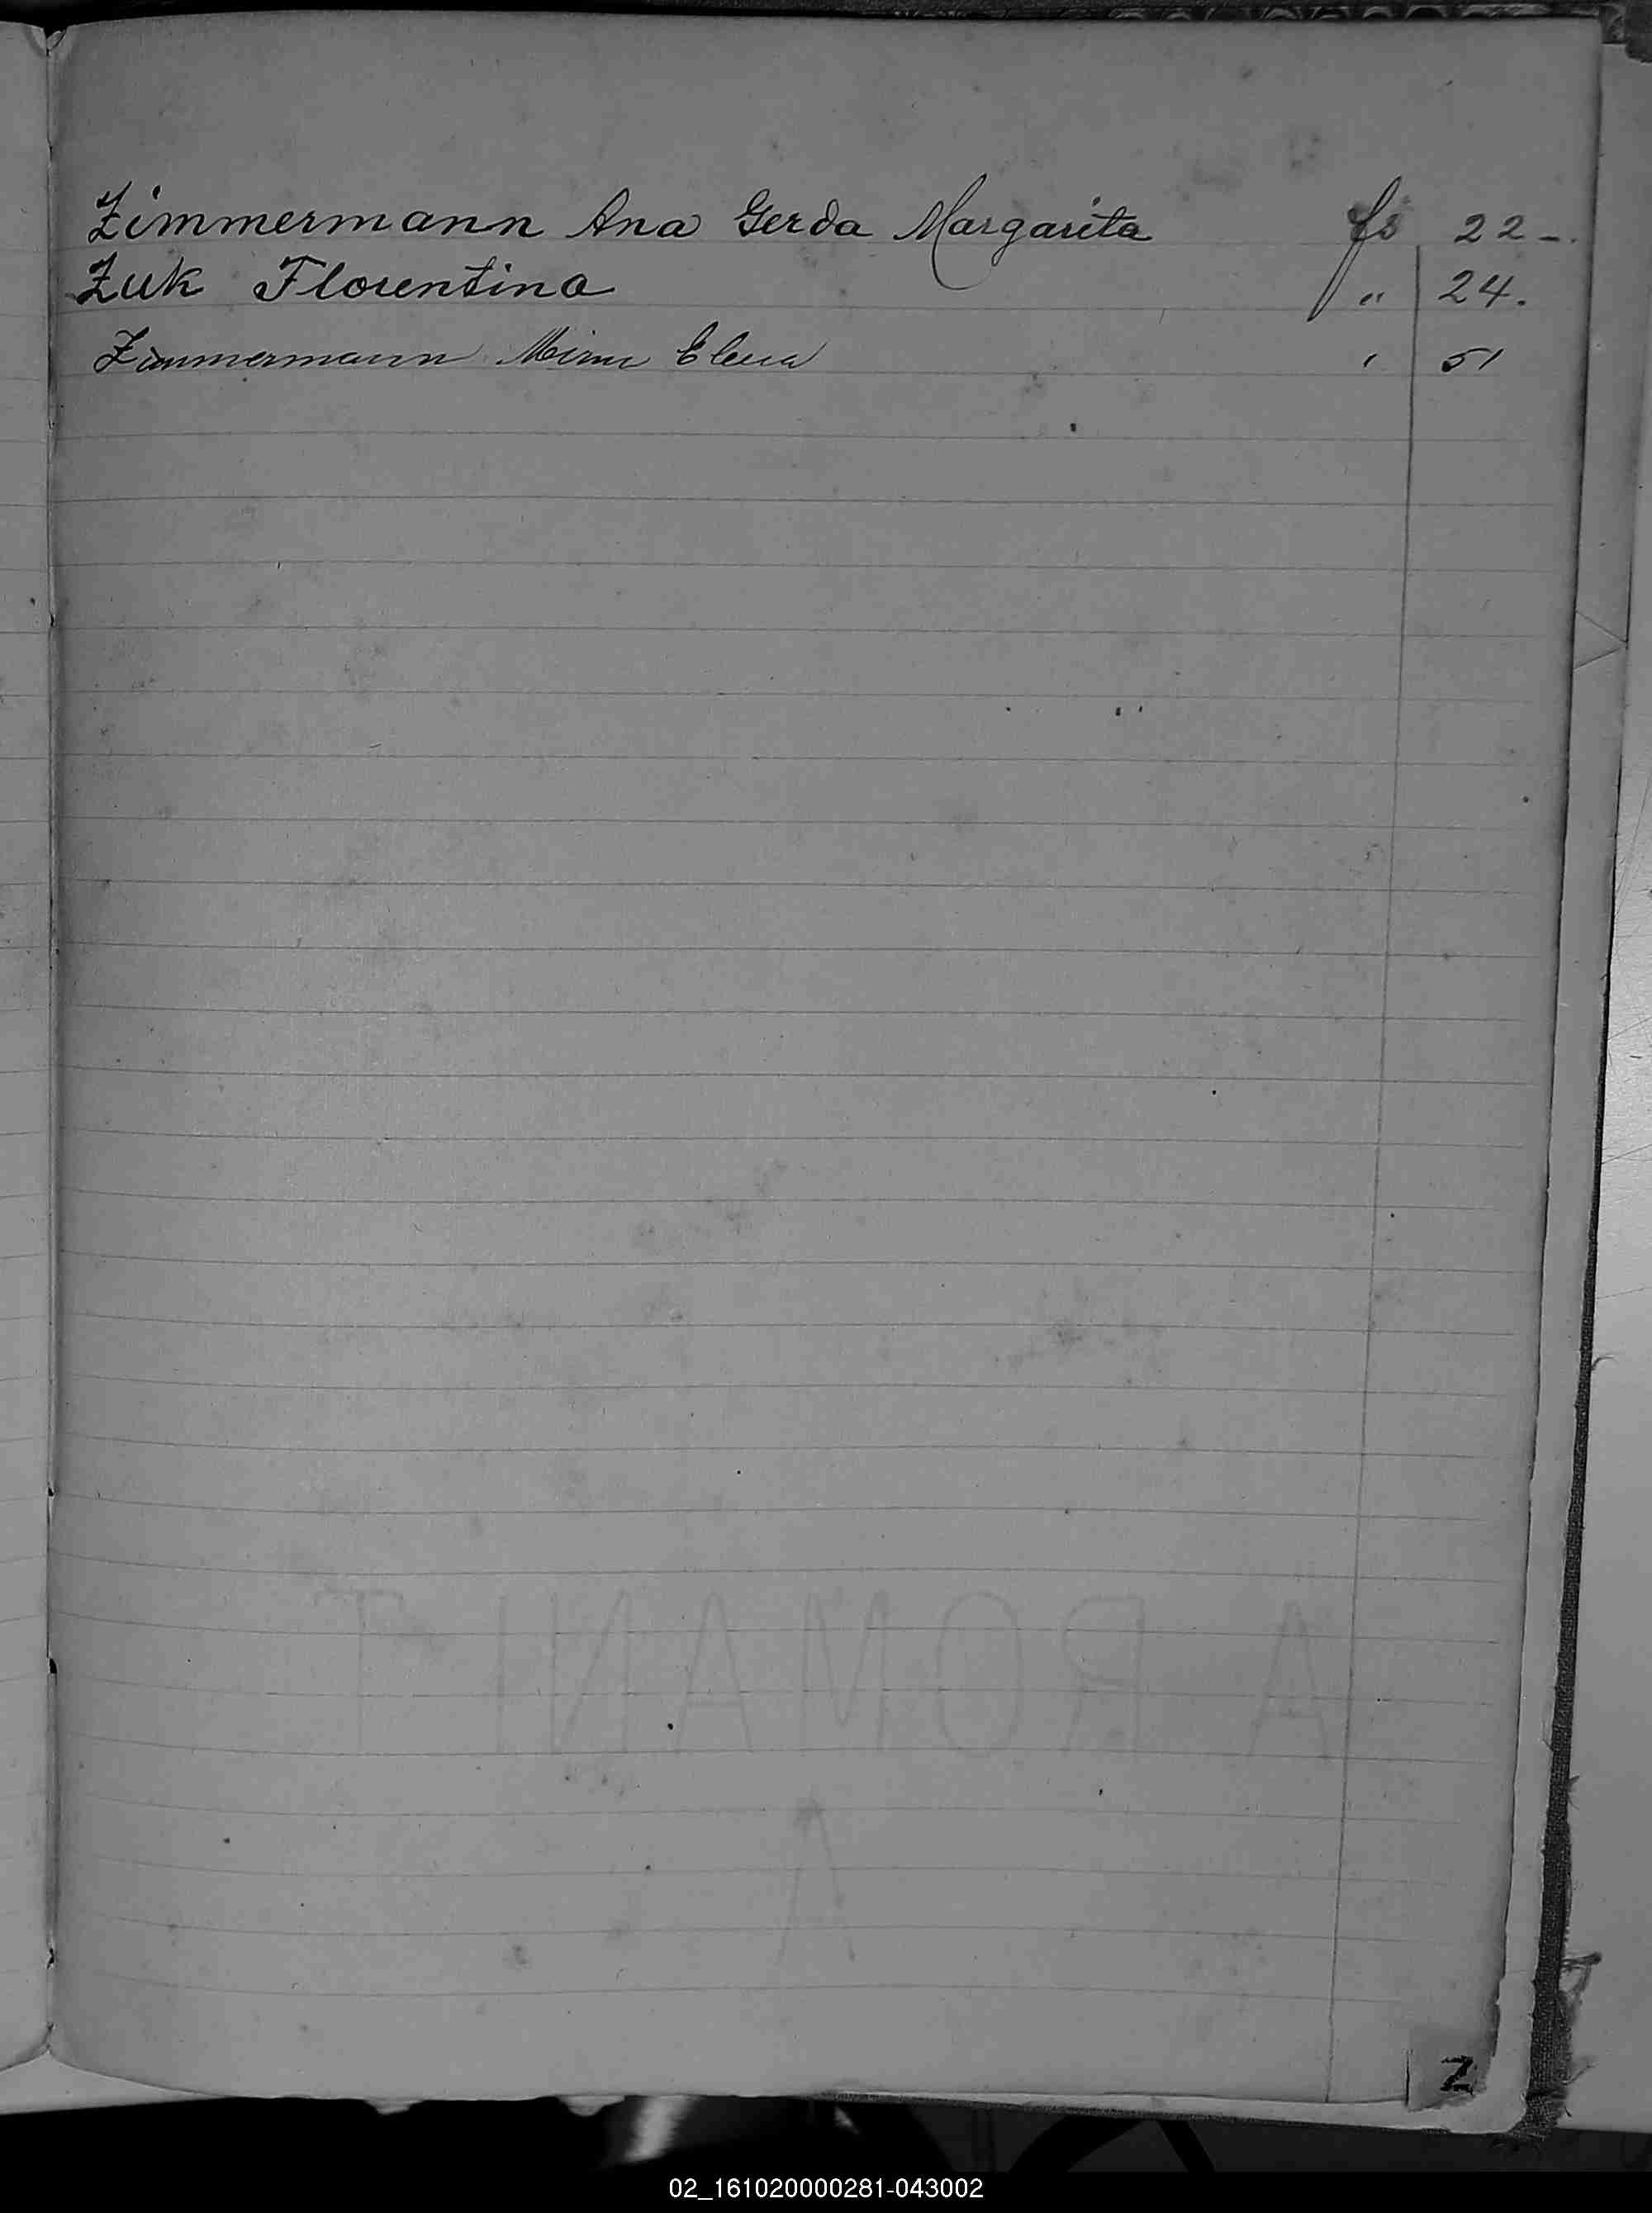 Zimmermann Ana Gerda Margarita fs 22 -.
Zuk Florentina " 24.
Zimmermann Elena ' 51
A ROMANI T
A
Z
02_161020000281-043002